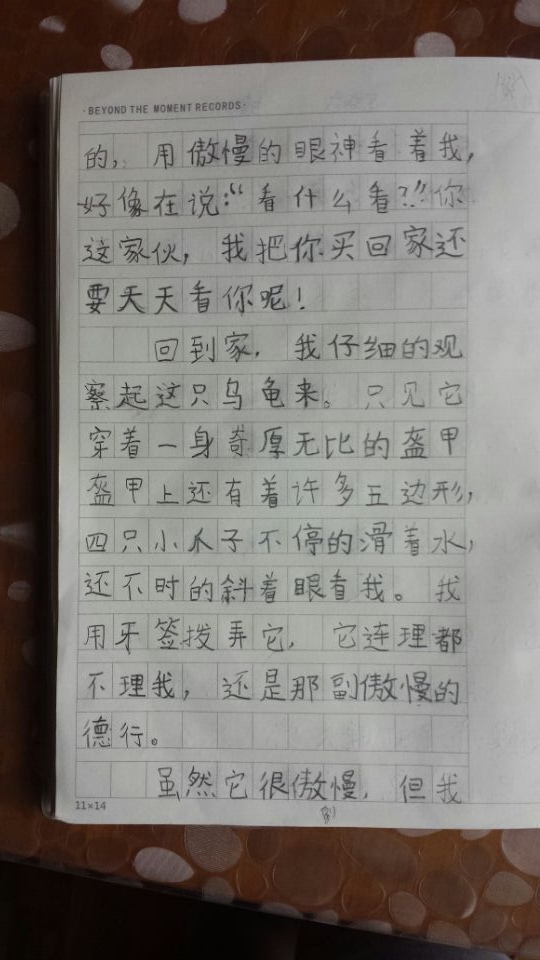 ·BEYOND THE MOMENT RECORDS·
的，用傲慢的眼神看着我，
好像在说：“看什么看？！”你
这家伙，我把你买回家还
要天天看你呢！
回到家，我仔细的观
察起这只乌龟来。只见它
穿着一身奇厚无比的盔甲
盔甲上还有着许多五边形，
四只小爪子不停的滑着水，
还不时的斜着眼看我。我
用牙签拨弄它，它连理都
不理我，还是那副傲慢的
德行。
虽然它很傲慢，但我
11×14